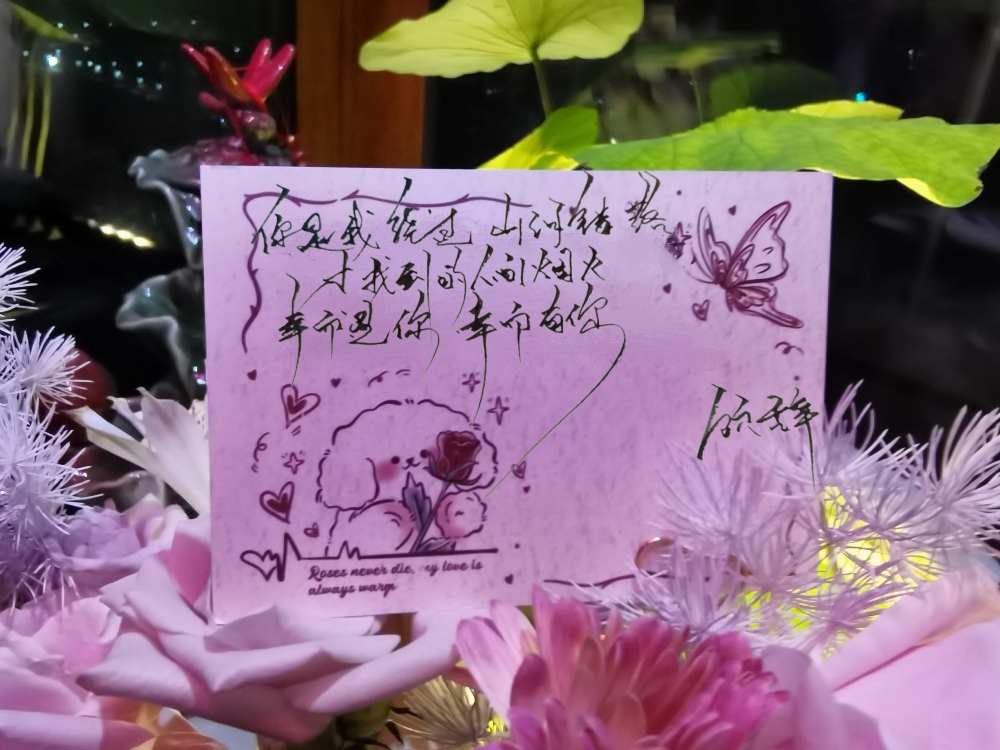 你是我绕过 山河错落
才找到的人间烟火
幸而遇你 幸而有你
Roses never die, my love is
always warm